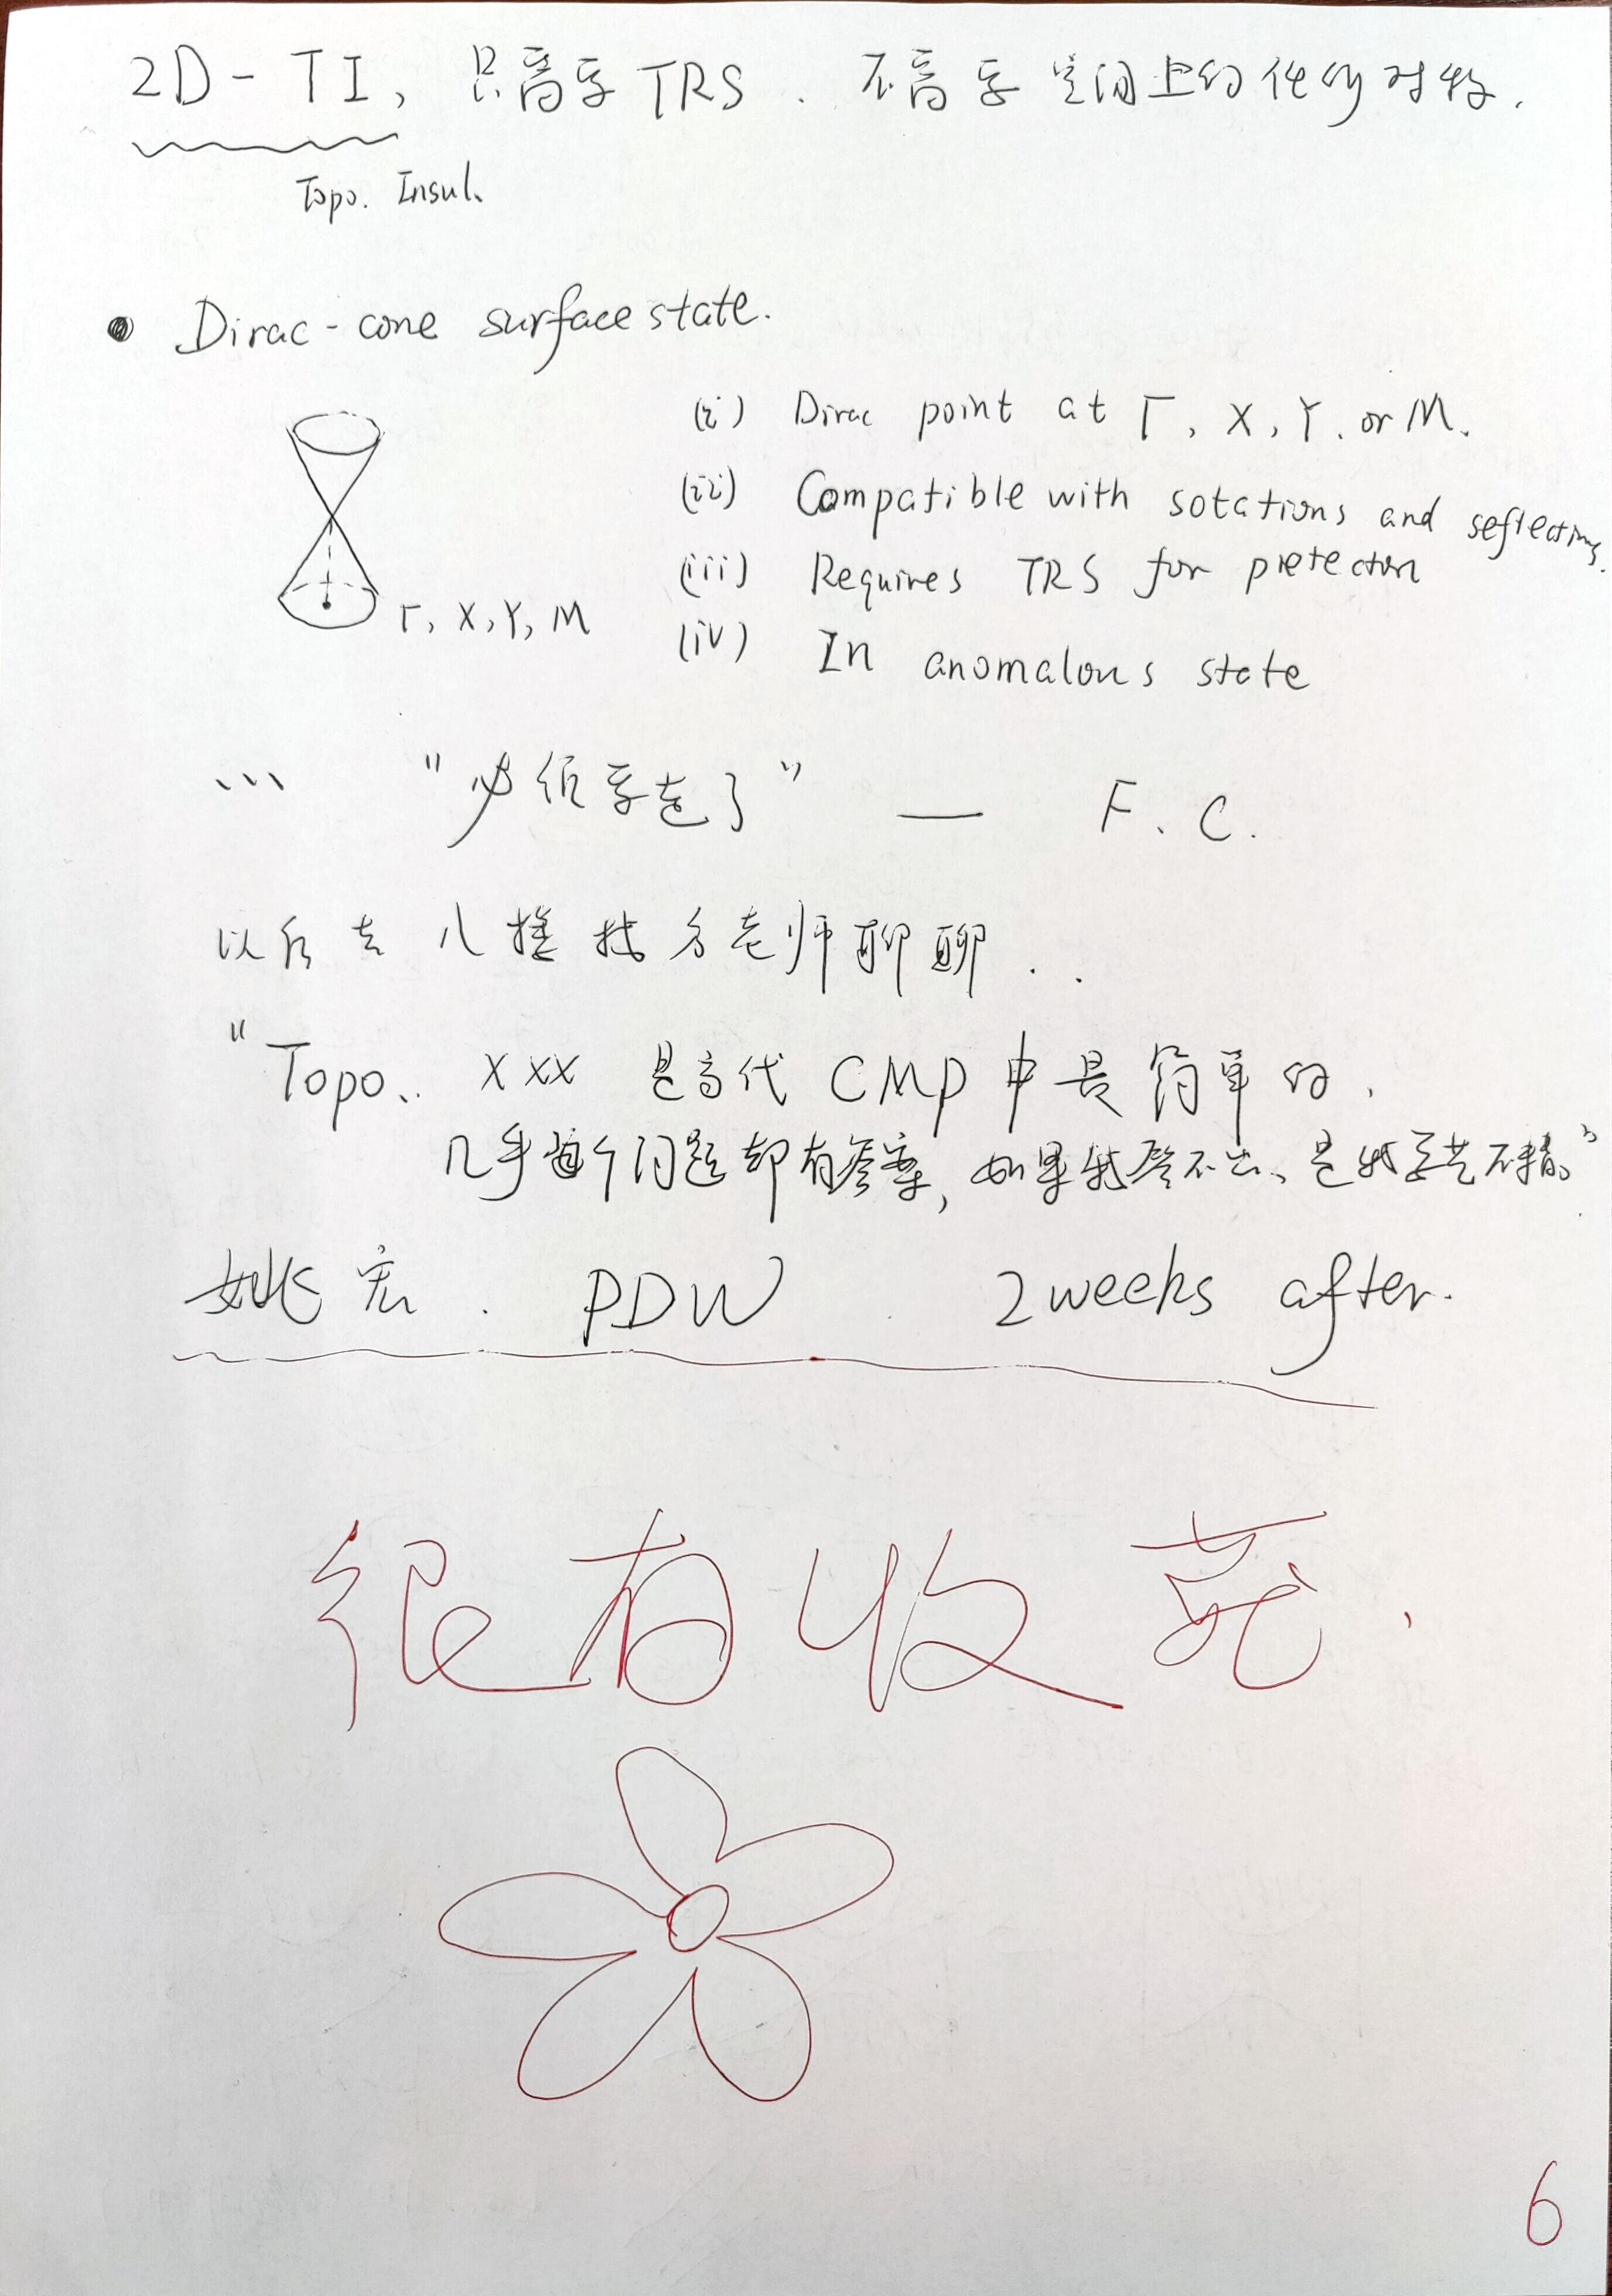 2D-TI, 只需要TRS. 不需要空间上的任何对称.
Topo. Insul.
Dirac-cone surface state.
(i) Dirac point at Γ, X, Y, or M.
(ii) Compatible with rotations and reflections.
Γ, X, Y, M
(iii) Requires TRS for protection
(iv) In anomalous state
... "必须学走了" — F. C.
以后去 找方老师聊聊..
"Topo. XXX 是当代CMP中最简单的.
几乎每个问题都有答案, 如果我答不出、是我学艺不精。"
姚宏. PDW 2 weeks after.
很有收获.
6